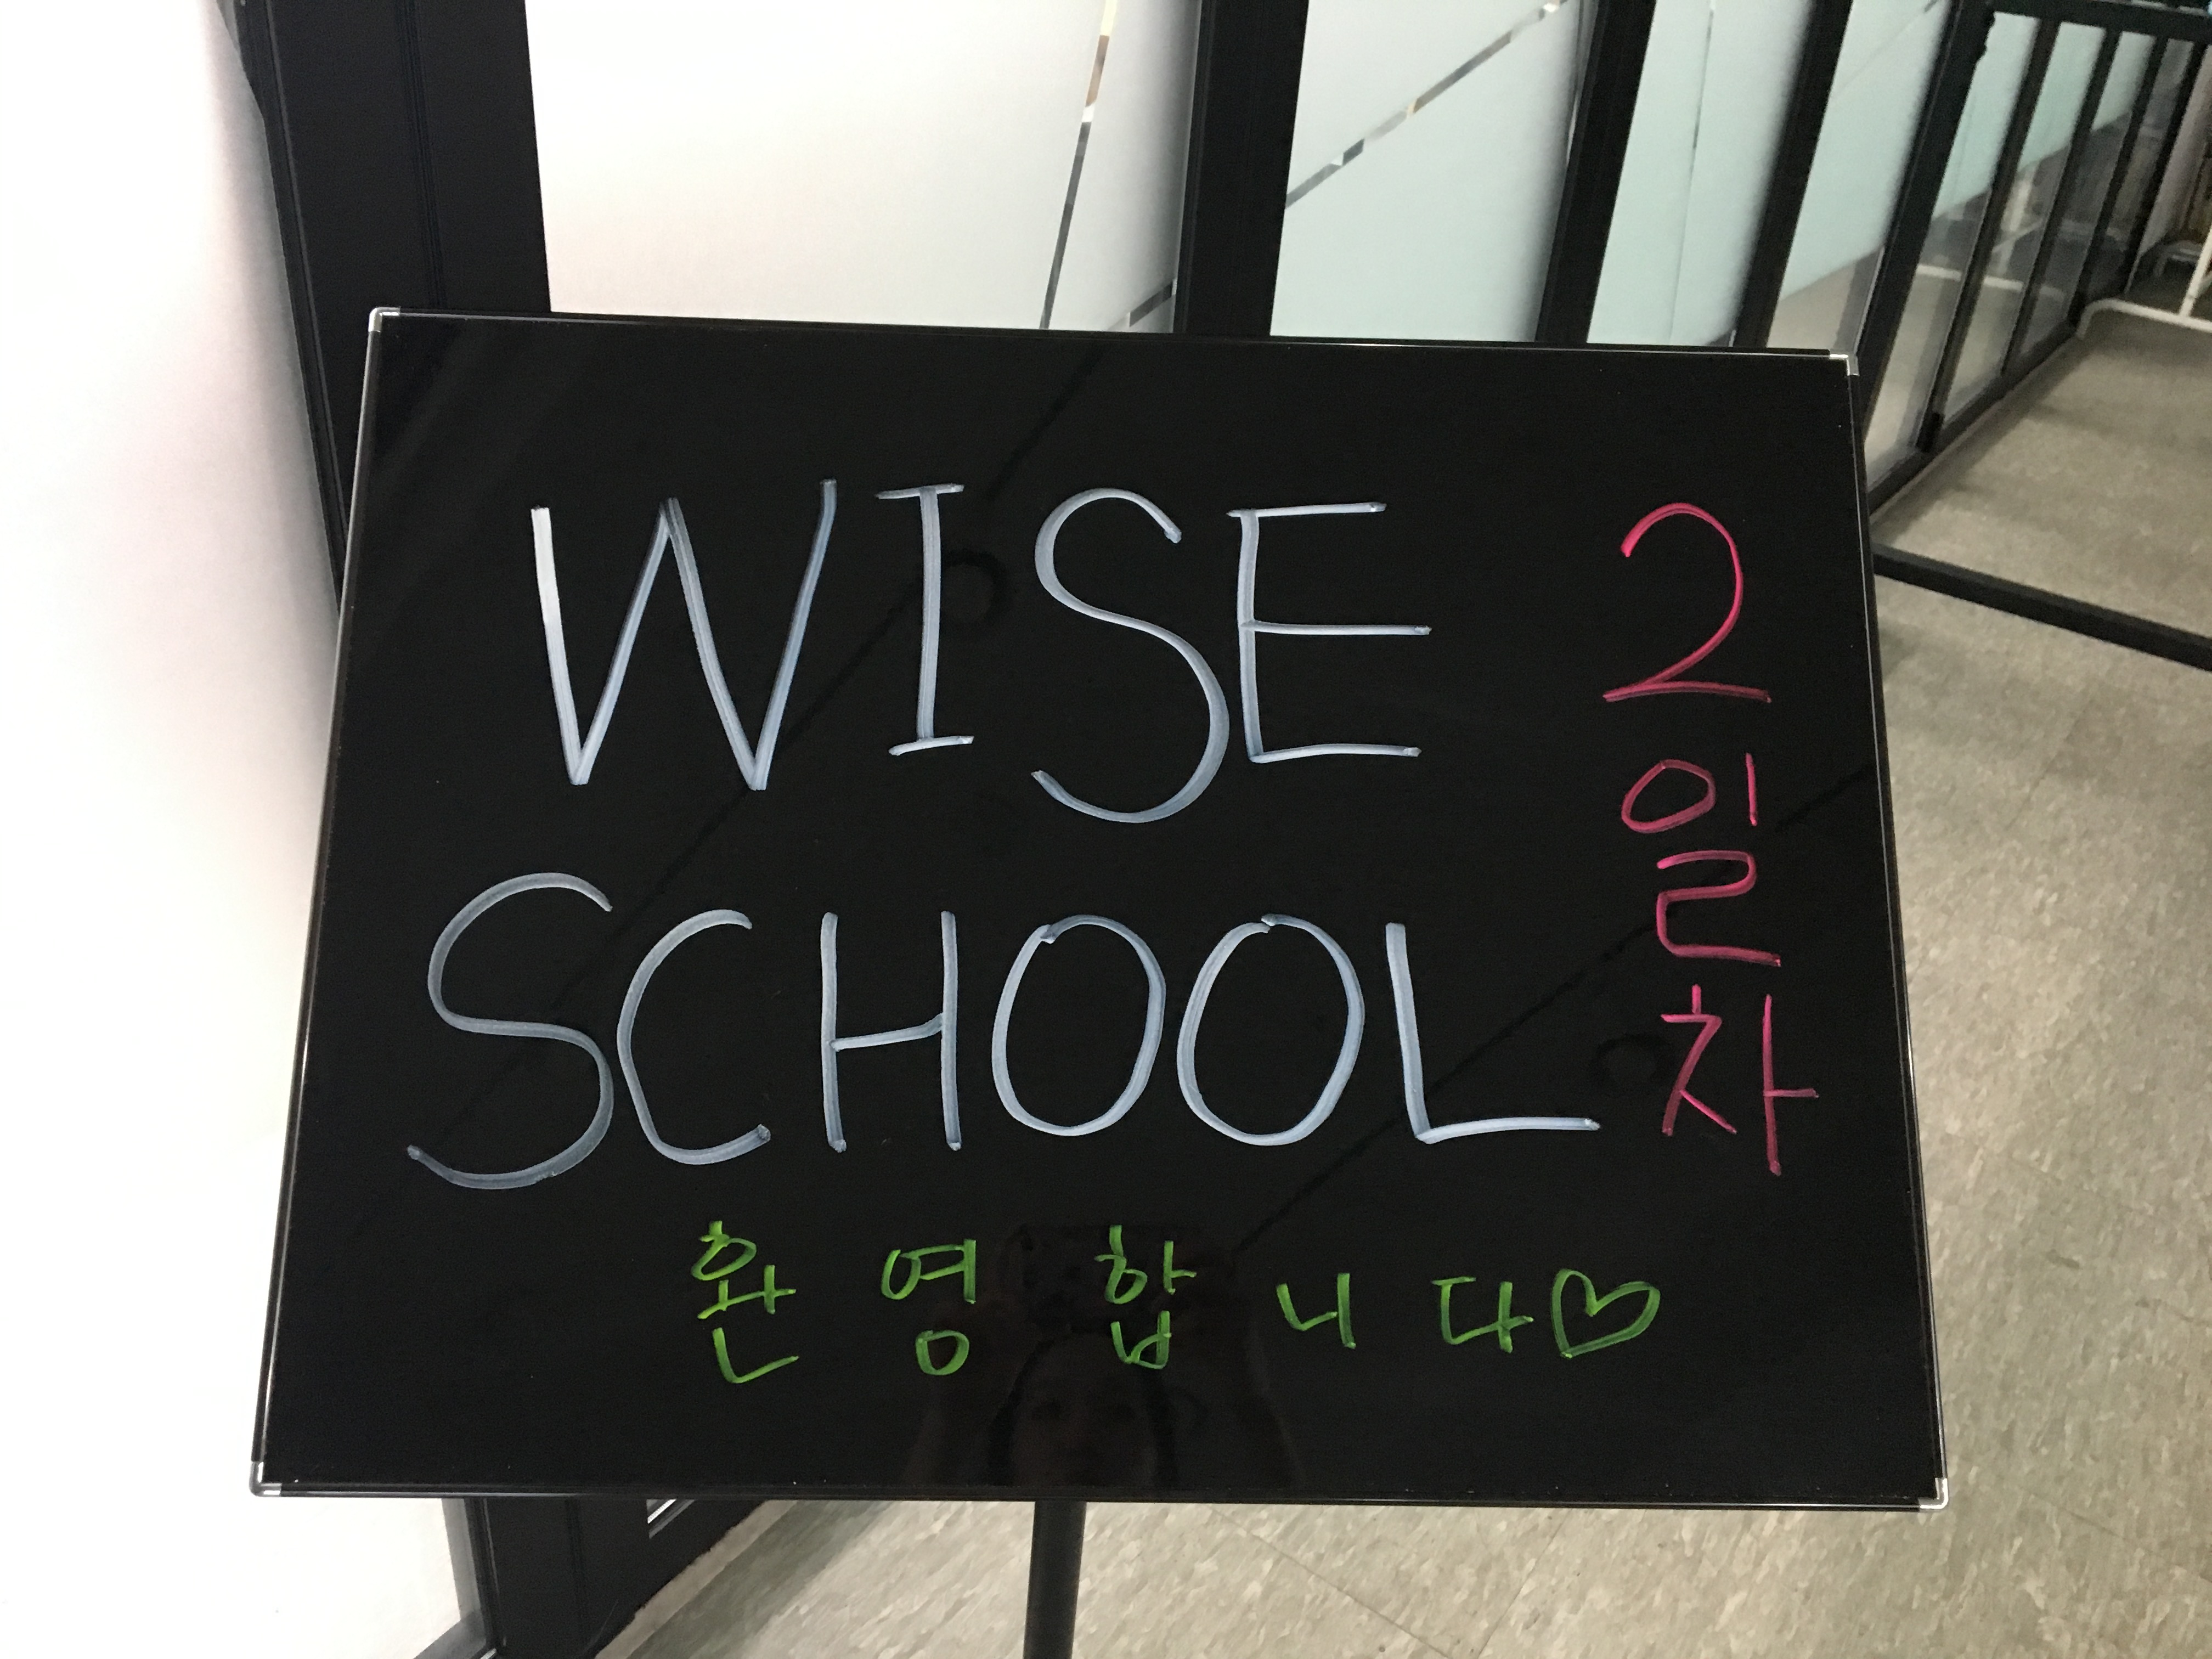 WISE
SCHOOL
2일차
환영합니다♡